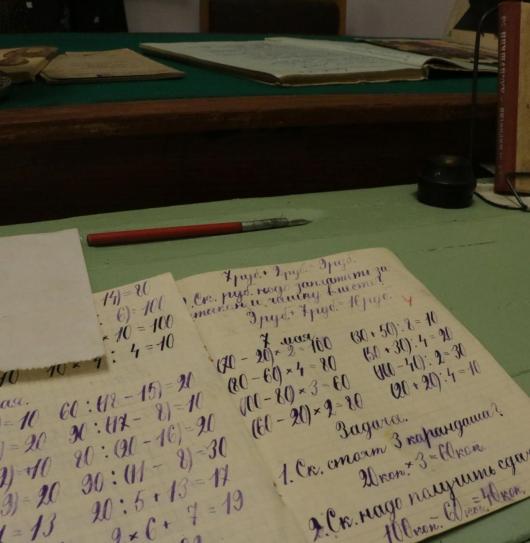 14) = 80
6) = 100
× 10 = 100
: 4 = 10
= 10 60 : (18 - 15) = 20
= 20 90 : (17 - 8) = 10
= 10 80 : (20 - 16) = 20
= 20 90 : (11 - 8) = 30
= 13 20 : 5 + 13 = 17
2 × 6 + 7 = 19
7 руб. + 2 руб. = 9 руб.
Ск. руб. надо заплатить за
и чашку вместе?
9 руб. + 7 руб. = 16 руб.
7 мая.
(70 - 20) × 2 = 100 (30 + 50) : 8 = 10
(80 - 60) × 4 = 80 (50 + 30) : 4 = 20
(100 - 80) × 3 = 60 (100 - 40) : 2 = 30
(60 - 20) × 2 = 80 (20 + 20) : 4 = 10
Задача.
1. Ск. стоят 3 карандаша?
20 коп. × 3 = 60 коп.
2. Ск. надо получить сдачи
100 коп. - 60 коп. = 40 коп.